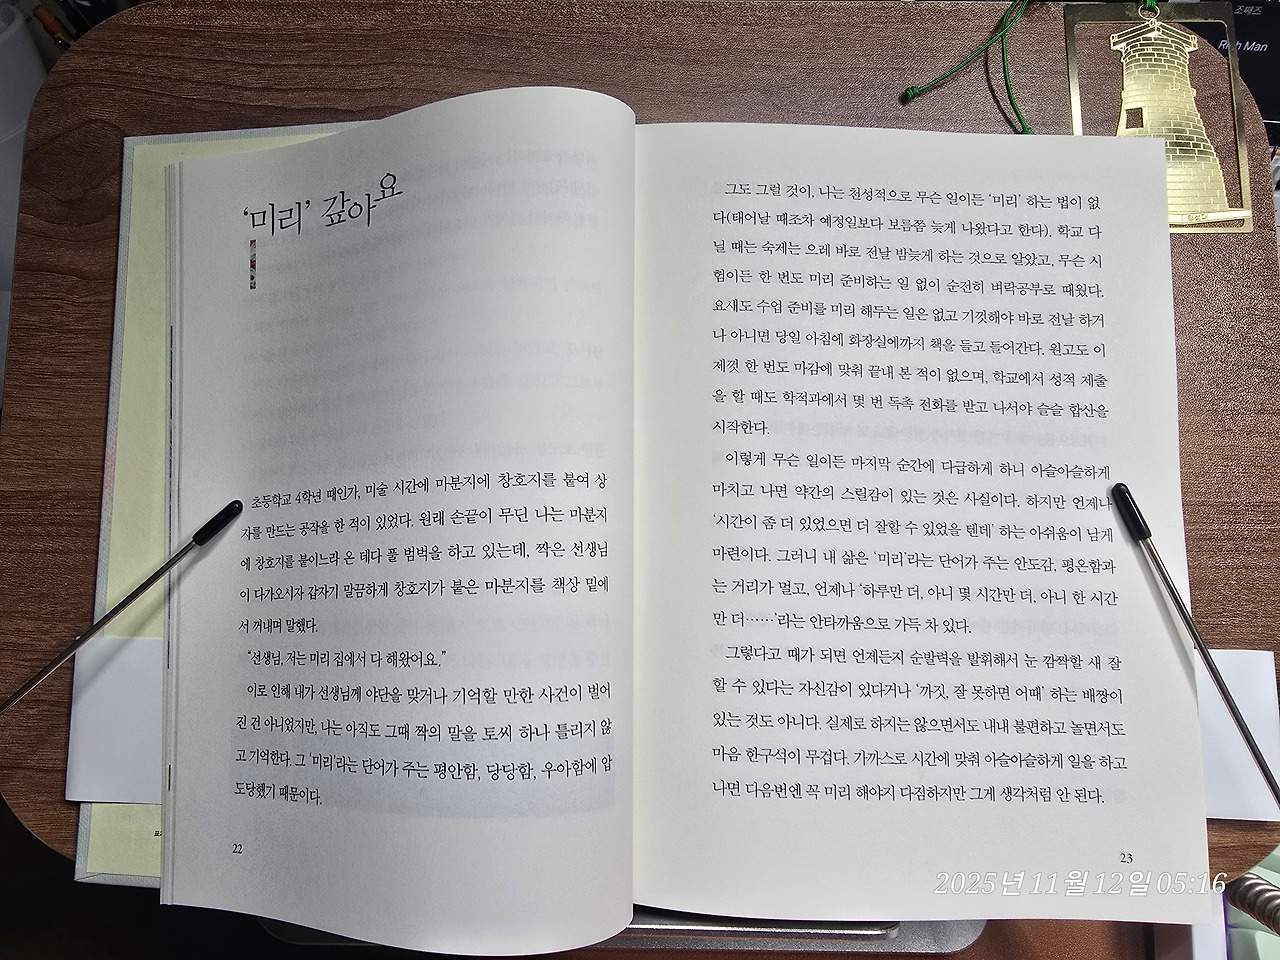 ‘미리’ 갚아요
초등학교 4학년 때인가, 미술 시간에 마분지에 창호지를 붙여 상
자를 만드는 공작을 한 적이 있었다. 원래 손끝이 무딘 나는 마분지
에 창호지를 붙이느라 온 데다 풀 범벅을 하고 있는데, 짝은 선생님
이 다가오시자 갑자기 말끔하게 창호지가 붙은 마분지를 책상 밑에
서 꺼내며 말했다.
“선생님, 저는 미리 집에서 다 해왔어요.”
이로 인해 내가 선생님께 야단을 맞거나 기억할 만한 사건이 벌어
진 건 아니었지만, 나는 아직도 그때 짝의 말을 토씨 하나 틀리지 않
고 기억한다. 그 ‘미리’라는 단어가 주는 평안함, 당당함, 우아함에 압
도당했기 때문이다.
22
그도 그럴 것이, 나는 천성적으로 무슨 일이든 ‘미리’ 하는 법이 없
다(태어날 때조차 예정일보다 보름쯤 늦게 나왔다고 한다). 학교 다
닐 때는 숙제는 으레 바로 전날 밤늦게 하는 것으로 알았고, 무슨 시
험이든 한 번도 미리 준비하는 일 없이 순전히 벼락공부로 때웠다.
요새도 수업 준비를 미리 해두는 일은 없고 기껏해야 바로 전날 하거
나 아니면 당일 아침에 화장실에까지 책을 들고 들어간다. 원고도 이
제껏 한 번도 마감에 맞춰 끝내 본 적이 없으며, 학교에서 성적 제출
을 할 때도 학적과에서 몇 번 독촉 전화를 받고 나서야 슬슬 합산을
시작한다.
이렇게 무슨 일이든 마지막 순간에 다급하게 하니 아슬아슬하게
마치고 나면 약간의 스릴감이 있는 것은 사실이다. 하지만 언제나
‘시간이 좀 더 있었으면 더 잘할 수 있었을 텐데’ 하는 아쉬움이 남게
마련이다. 그러니 내 삶은 ‘미리’라는 단어가 주는 안도감, 평온함과
는 거리가 멀고, 언제나 ‘하루만 더, 아니 몇 시간만 더, 아니 한 시간
만 더……’라는 안타까움으로 가득 차 있다.
그렇다고 때가 되면 언제든지 순발력을 발휘해서 눈 깜짝할 새 잘
할 수 있다는 자신감이 있다거나 ‘까짓, 잘 못하면 어때’ 하는 배짱이
있는 것도 아니다. 실제로 하지는 않으면서도 내내 불편하고 놀면서도
마음 한구석이 무겁다. 가까스로 시간에 맞춰 아슬아슬하게 일을 하고
나면 다음번엔 꼭 미리 해야지 다짐하지만 그게 생각처럼 안 된다.
23
조째즈
Rich Man
첨성대
2025년 11월 12일 05:16